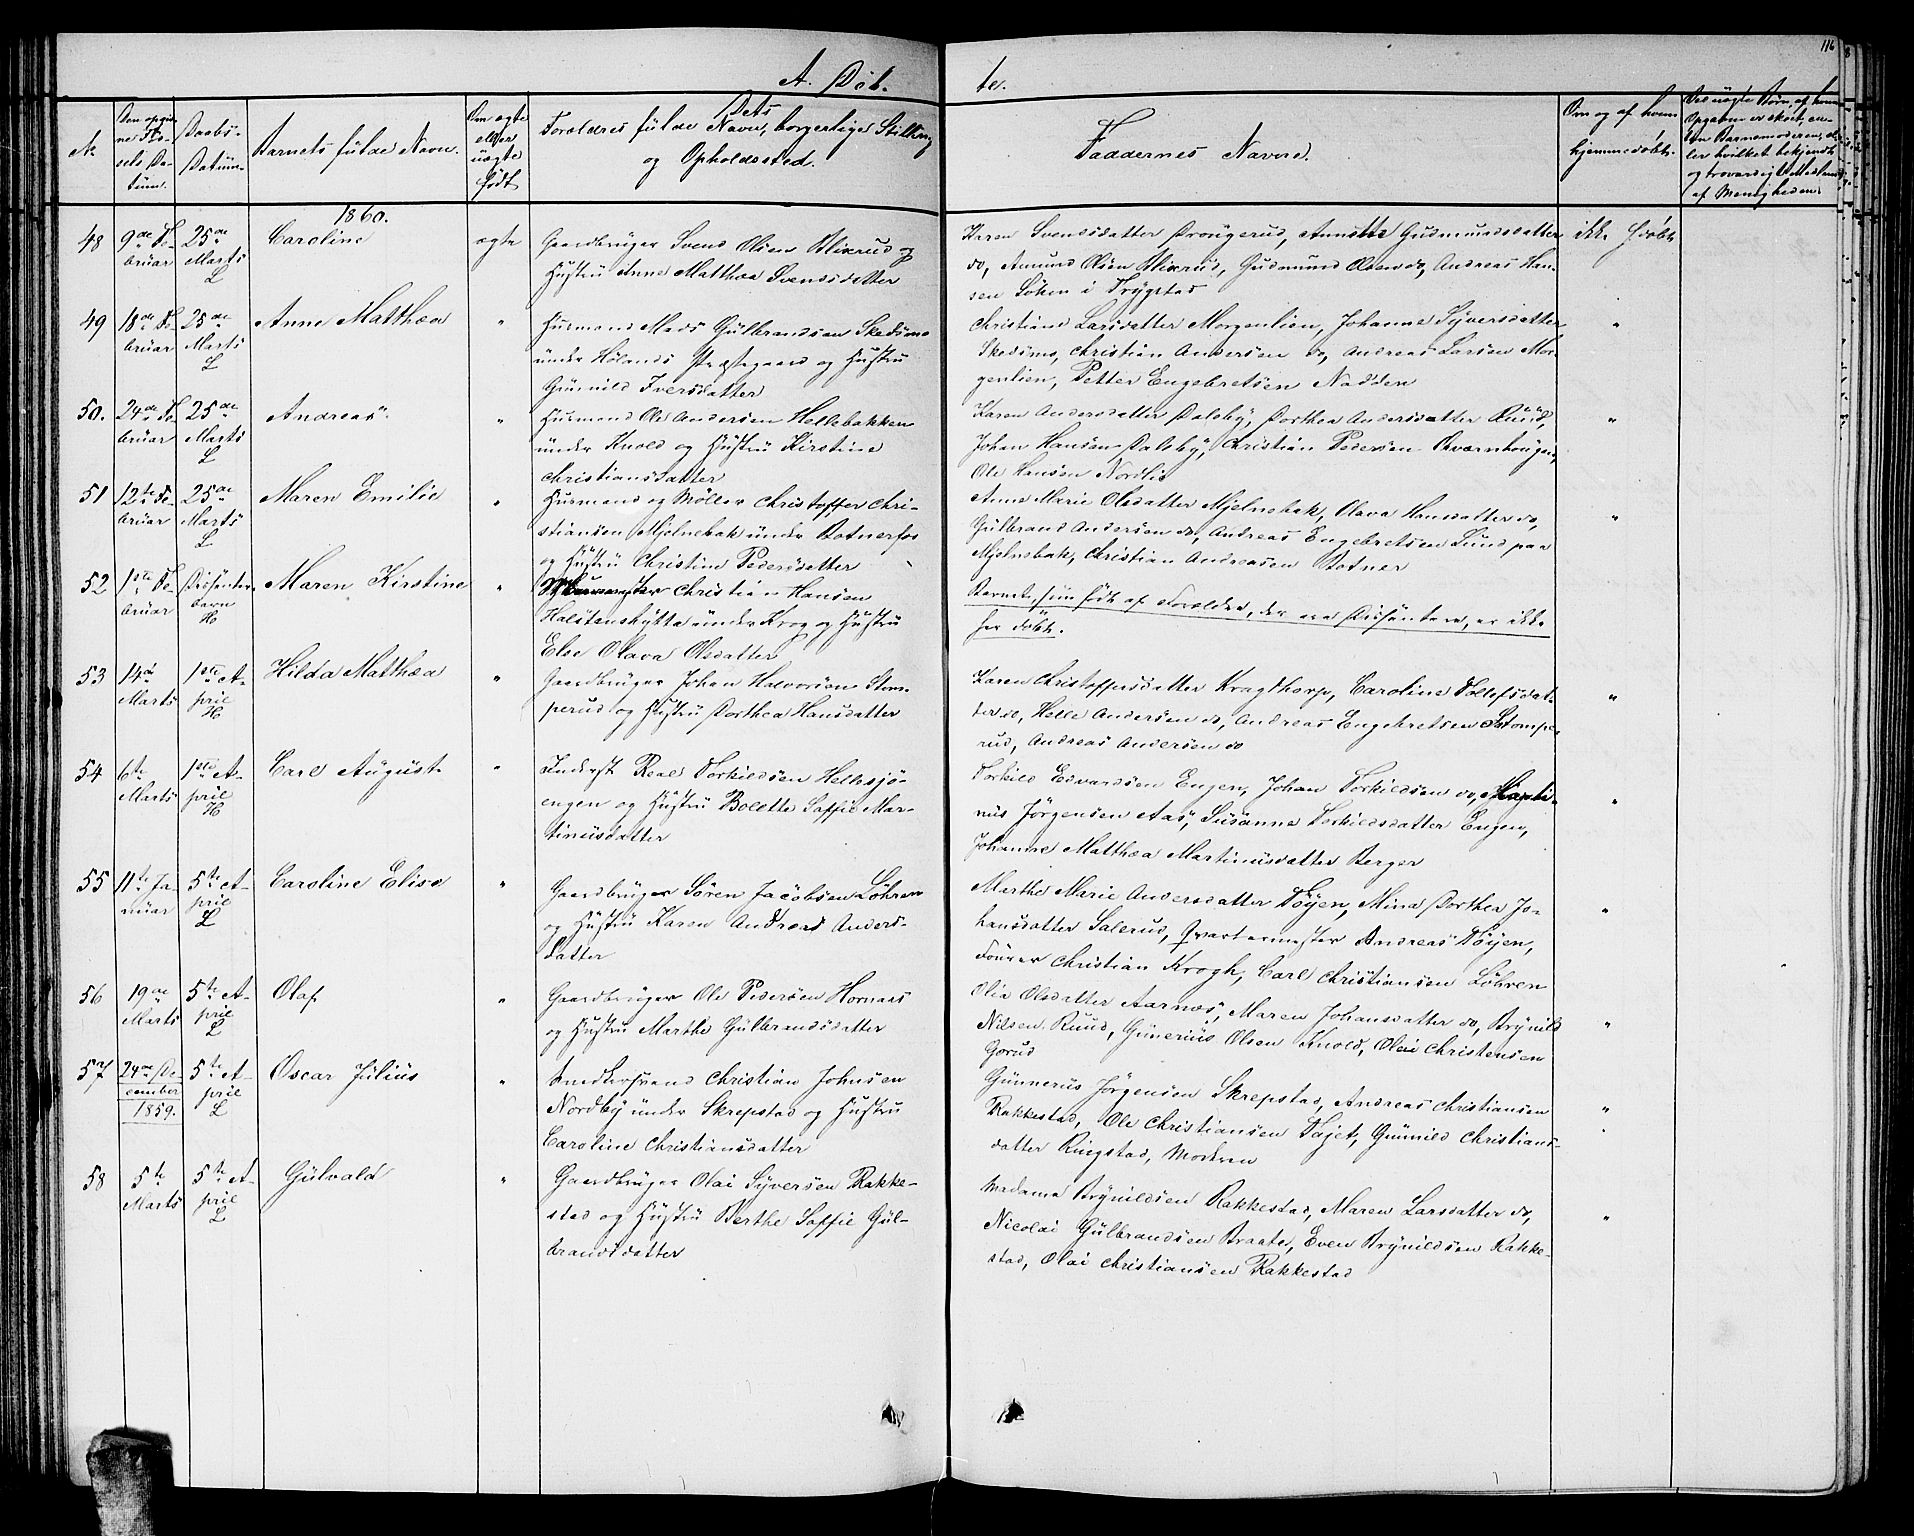 116
A. Døb-
te.
No
Den opgiv-
ne Fød-
sels Da-
tum.
Daabs-
Datum.
Barnets fulde Navn.
Om ægte
eller
uægte
født
Dets
Forældres fulde Navn, borgerlige Stilling
og Opholdssted.
Faddernes Navne.
Om og af hvem
hjemmedøbt.
1860.
48
9de Fe-
bruar
25de
Marts
L
Caroline
ægte
Gaardbruger Svend Olsen Blixrud og
Hustru Anne Matthea Svendsdatter
Karen Svendsdatter Drougerud, Annette Gudmundsdatter
do, Amund Olsen Blixrud, Gudmund Olsen do, Andreas Han-
sen Löken i Trygstad
ikke hdøbt
49
18de Fe-
bruar
25de
Marts
L
Anne Matthea
"
Husmand Mads Gulbrandsen Skedsmo
under Hølands Præstegaard og Hustru
Gunnild Iversdatter
Christiane Larsdatter Morgenlien, Johanne Syversdatter
Skedsmo, Christian Andersen do, Andreas Larsen Mor-
genlien, Petter Engebretsen Nadden
"
50.
24de Fe-
bruar
25de
Marts
L
Andreas
"
Husmand Ole Andersen Hellebakken
under Knold og Hustru Kirstine
Christiansdatter
Karen Andersdatter Dalsby, Dorthea Andersdatter Ruud,
Johan Hansen Dalsby, Christian Pedersen Qværnhougen,
Ole Hansen Nordlie
"
51
12te Fe-
bruar
25de
Marts
L
Maren Emilie
"
Husmand og Møller Christoffer Chri-
stiansen Mjelnebak under Botnerfos
og Hustru Christine Pedersdatter
Anne Marie Olsdatter Mjelnebak, Olava Hansdatter do,
Gulbrand Andersen do, Andreas Engebretsen Lund paa
Mjelnebak, Christian Andreasen Botner
"
52
1ste Fe-
bruar
Dissenter-
barn
H
Maren Kirstine
"
Christian Hansen
Halstenshytta under Krog og Hustru
Else Olava Olsdatter
Barnet, som født af Forældre, der ere Dissentere, er ikke
her døbt.
53
14de
Marts
1ste A-
pril
H
Hilda Matthea
"
Gaardbruger Johan Halvorsen Stom-
perud og Hustru Dorthea Hansdatter
Karen Christoffersdatter Kragthorp, Caroline Tollefsdat-
ter do, Helle Andersen do, Andreas Engebretsen Stompe-
rud, Andreas Andersen do
"
54
6te
Marts
1ste A-
pril
H
Carl August
"
Inderst Real Torkildsen Hellesjö-
engen og Hustru Bolette Soffie Mar-
tinusdatter
Torkild Edvardsen Engen, Johan Torkildsen do, Marti-
nus Jörgensen Aas, Susanne Torkildsdatter Engen,
Johanne Matthea Martinusdatter Berger
"
55
11te Ja-
nuar
5te A-
pril
L
Caroline Elise
"
Gaardbruger Sören Jacobsen Löhren
og Hustru Karen Andrea Anders-
datter
Marthe Marie Andersdatter Töyen, Mina Dorthea Jo-
hansdatter Salerud, Qvartermester Andreas Töyen,
Fourer Christian Krogh, Carl Christiansen Löhren
"
56
19de
Marts
5te A-
pril
L
Olaf
"
Gaardbruger Ole Pedersen Hornaas
og Hustru Marthe Gulbrandsdatter
Olea Olsdatter Aarnæs, Maren Johansdatter do, Brynild
Nilsen Ruud, Gunerius Olsen Knold, Olai Christensen
Gorud
"
57
24de De-
cember
1859.
5te A-
pril
L
Oscar Julius
"
Snedkersvend Christian Johnsen
Nordby under Skrepstad og Hustru
Caroline Christiansdatter
Gunnerus Jörgensen Skrepstad, Andreas Christiansen
Rakkestad, Ole Christiansen Tajet, Gunnild Christians-
datter Ringstad, Moderen
"
58
5te
Marts
5te A-
pril
L
Gulvald
"
Gaardbruger Olai Syversen Rakke-
stad og Hustru Berthe Soffie Gul-
brandsdatter
Madame Brynildsen Rakkestad, Maren Larsdatter do,
Nicolai Gulbrandsen Braate, Even Brynildsen Rakke-
stad, Olai Christiansen Rakkestad
"